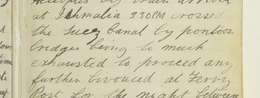 by train arrived
at Ishmalia 330 PM crossed
the Suez Canal by pontoon
bridges being to much
exhausted to proceed any
further bivouced at Ferry
Post for the night between